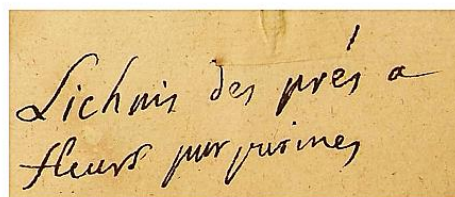 Lichnis des prés a
fleurs purpurines